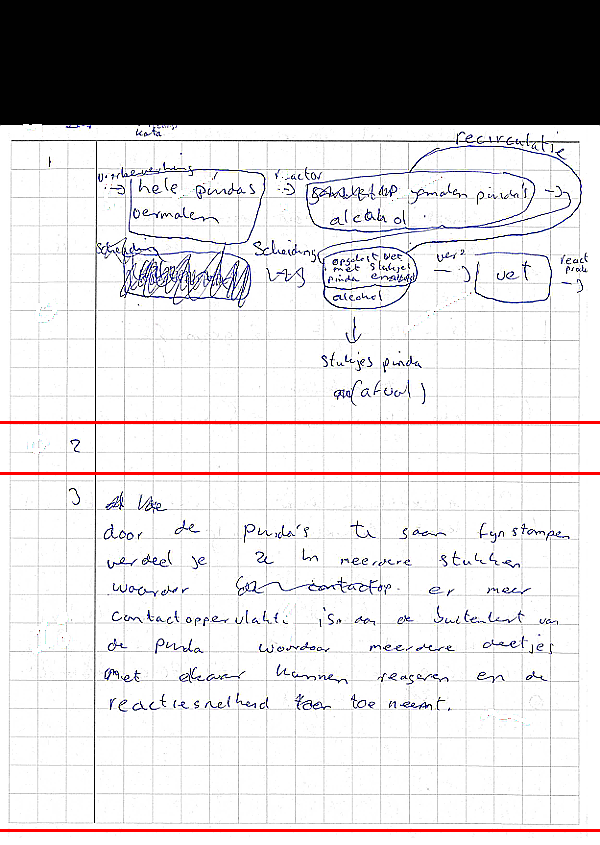 kata
recirculatie
1
voorbewerking
reactor
hele pindas
vermalen
gemalen pinda's
alcohol
Scheiding
Scheiding
opgelost vet
met stukjes
pinda
alcohol
vet
stukjes pinda
(afval)
2
3
door de pinda's te gaan fynstampen
verdeel je ze in meerdere stukken
waardoor er meer
contactoppervlakte is aan de buitenkant van
de pinda waardoor meerdere deeltjes
met elkaar kunnen reageren en de
reactiesnelheid toe neemt.